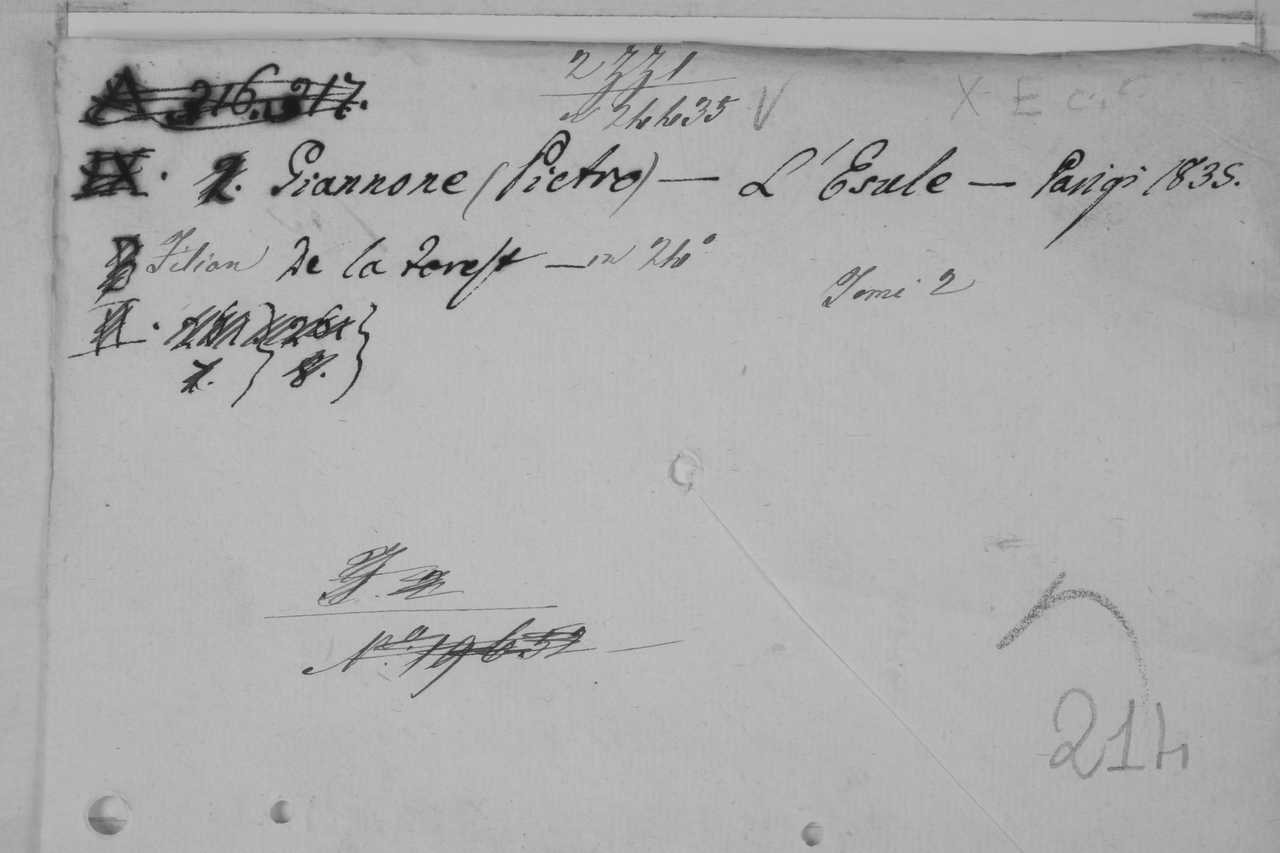 A 216. 217.
2771
n 24435 V
X E
IX. 2. Giannone (Pietro) — L'Esule — Parigi 1835.
De la Forest — in 24°
Tomi 2
II.
7. } 8. }
N.° 19652
214